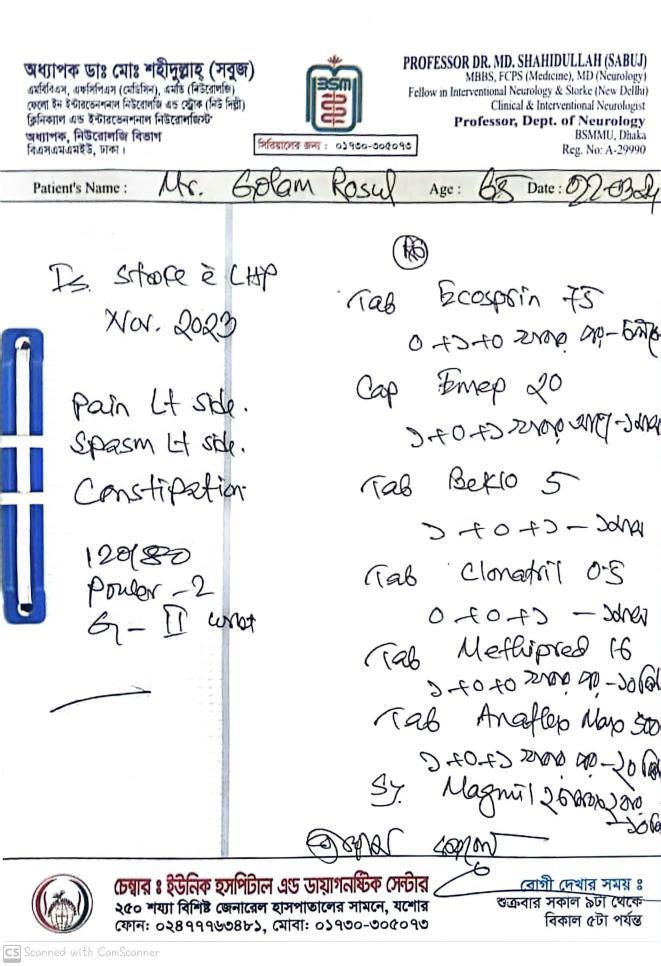 অধ্যাপক ডাঃ মোঃ শহীদুল্লাহ্ (সবুজ)
এমবিবিএস, এফসিপিএস (মেডিসিন), এমডি (নিউরোলজি)
ফেলো ইন ইন্টারভেনশনাল নিউরোলজি এন্ড স্ট্রোক (নিউ দিল্লী)
ক্লিনিক্যাল এন্ড ইন্টারভেনশনাল নিউরোলজিস্ট
অধ্যাপক, নিউরোলজি বিভাগ
বিএসএমএমইউ, ঢাকা।
BSM
সিরিয়ালের জন্য : ০১৭৩০-৩০৫০৭৩
PROFESSOR DR. MD. SHAHIDULLAH (SABUJ)
MBBS, FCPS (Medicine), MD (Neurology)
Fellow in Interventional Neurology & Storke (New Dellhi)
Clinical & Interventional Neurologist
Professor, Dept. of Neurology
BSMMU, Dhaka
Reg. No: A-29990
Patient's Name : Mr. Golam Rosul Age : 65 Date : 22-03-24
Nov. 2023
Pain Lt side.
Spasm Lt side.
Constipation
120/80
Power -2
G- II
Rx
Tab Ecosprin 75
০+১+০
Cap Emep 20
১+০+১
Tab Beklo 5
১+০+১ – ১মাস
Tab Clonatril 0.5
০+০+১ – ১মাস
Tab Methipred 16
১+০+০
Tab Anaflex Max 500
১+০+১
Sy. Magmil
চেম্বার : ইউনিক হসপিটাল এন্ড ডায়াগনষ্টিক সেন্টার
২৫০ শয্যা বিশিষ্ট জেনারেল হাসপাতালের সামনে, যশোর
ফোন: ০২৪৭৭৭৬৩৪৮১, মোবা: ০১৭৩০-৩০৫০৭৩
রোগী দেখার সময় :
শুক্রবার সকাল ৯টা থেকে
বিকাল ৫টা পর্যন্ত
CS Scanned with CamScanner